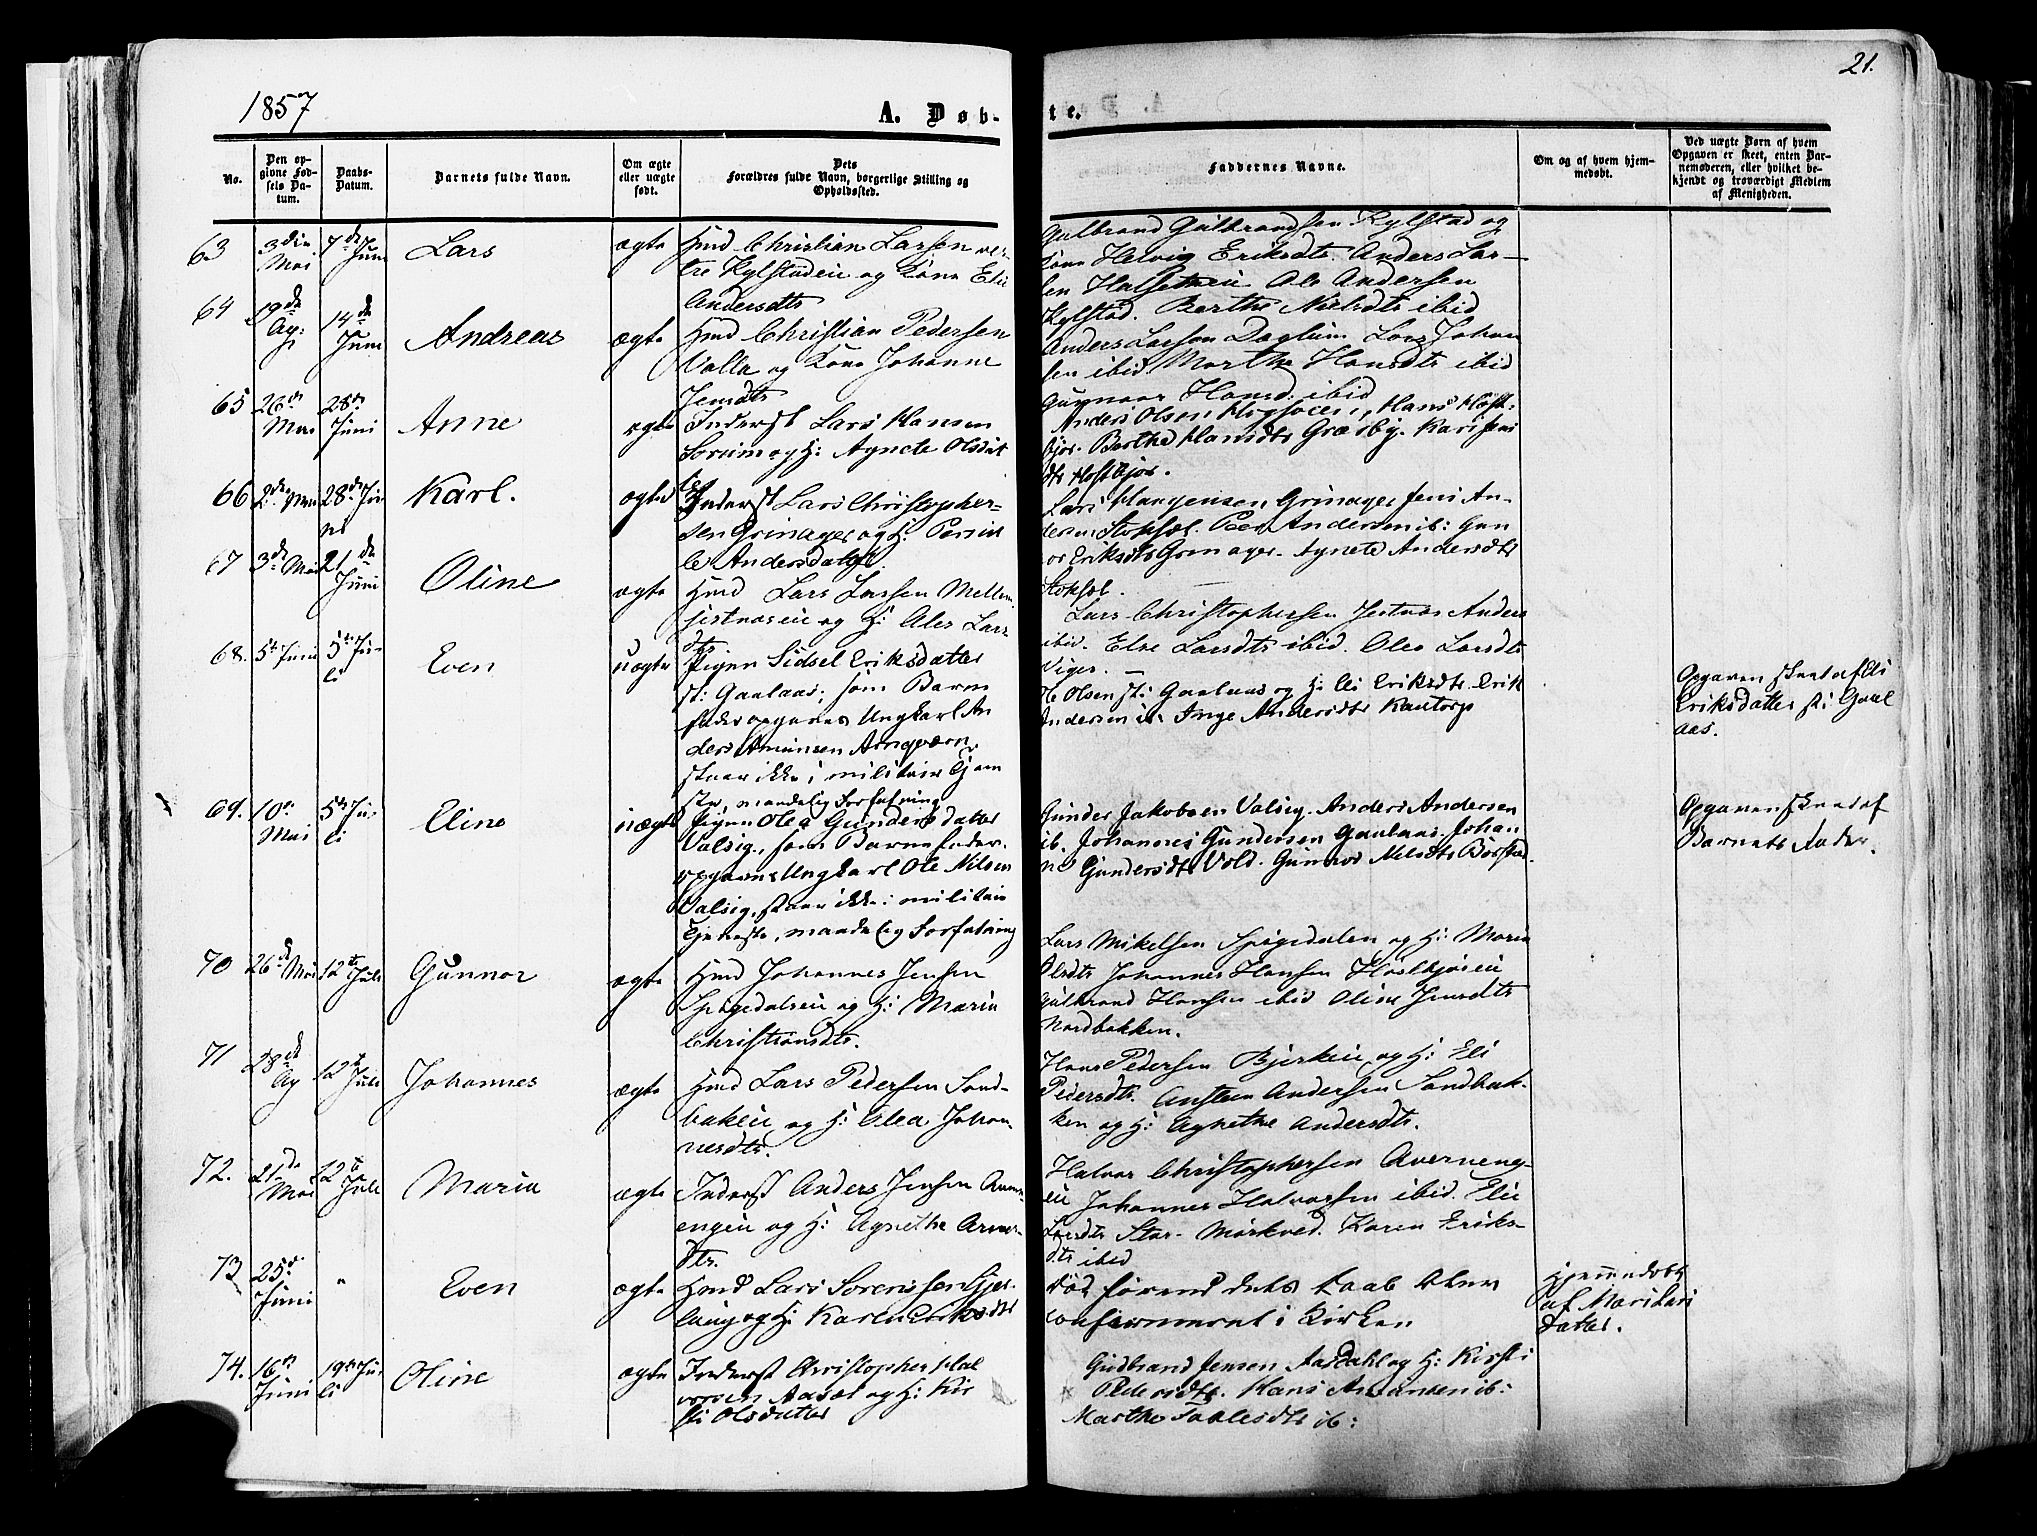 21.
1857
A. Døb-
te.
No.
Den op-
givne Fød-
sels Da-
tum.
Daabs-
Datum.
Barnets fulde Navn.
Om ægte
eller uægte
født.
Dets
Forældres fulde Navn, borgerlige Stilling og
Opholdssted.
Faddernes Navne.
Om og af hvem hjem-
medøbt.
Ved uægte Børn af hvem
Opgaven er skeet, enten Bar-
nemoderen, eller hvilket be-
kjendt og troværdigt Medlem
af Menigheden.
63
3die
Mai
7de
Juni
Lars
ægte
Hmd Christian Larsen
Kylstadeie og Kone Elie
Andersdtr
Gulbrand Gulbrandsen Kylstad og
Kone Helvig Eriksdtr. Anders Lar-
sen Ole Andersen
Kylstad. Berthe Nielsdtr ibid
64
29de
14de
Juni
Andreas
ægte
Hmd Christian Pedersen
Valla og Kone Johanne
Jensdtr
Anders Larsen Daglum Lars Johan
sen ibid Marthe Hansdtr ibid
Hansd. ibid
65
26de
Mai
28de
Juni
Anne
ægte
Inderst Lars Hansen
Sorum og H: Agnete Olsdat
ter
Anders Olsen Hans Høst-
bjør. Berthe Hansdtr Græsby. Kari Jens
dtr Høstbjør.
66
2de Mai
28de Ju-
ni
Karl.
ægte
Inderst Lars Christopher-
sen Grinager og H: Pernil
le Andersdatter.
Lars Grinager Jens An-
dersen Stoksæt. Peer Andersen ib: Gun
or Eriksdtr Grinager. Agnete Andersdtr
Stoksæt.
67
3de Mai
21de
Juni
Oline
ægte
Hmd Lars Larsen Mellem
jestnæseie og H: Olea Lars
dtr
Lars Christophersen Jestnæs Anders
ibid. Else Larsdtr ibid. Olea Larsdtr
68.
5te Juni
5te Ju-
li
Even
uægte
Pigen Sidsel Eriksdatter
st: Gaalaas; som Barne
fader opgaves Ungkarl An
ders Amunsen Arnqværn
staar ikke i militair Tjene
ste, maadelig Forfatning
Ole Olsen st: Gaalaas og H: Eli Eriksdtr. Erik
Andersen ib. Inge Andersdtr Kautorp
Opgaven skeet af Eli
Eriksdatter st: Gaal
aas.
69.
10de
Mai
5te Ju-
li
Eline
uægte
Pigen Olea Gundersdatter
Valsig, som Barnefader
opgaves Ungkarl Ole Nilsen
Valsig, staar ikke i militair
Tjeneste, maadelig Forfatning
Gunder Jakobsen Valsig. Anders Andersen
ib. Johannes Gundersen Gaalaas. Johan
ne Gundersdtr Vold. Gunnor Nilsdtr Børstad.
Opgaven skeet af
Barnets Fader.
70
26de Mai
12te
Juli
Gunnor
ægte
Hmd Johannes Jensen
Spigedalseie og H: Maria
Christiansdtr.
Lars Mikelsen Spigedalen og H: Maria
Olsdtr Johannes Hansen Høstbjøreie
Gulbrand Hansen ibid Oline Jensdtr
Nordbakken.
71
28de
12te
Juli
Johannes
ægte
Hmd Lars Pedersen Sand-
bakeie og H: Olea Johan
nesdtr.
Hans Pedersen Bjerkeie og H: Eli
Pedersdtr. Austen Andersen Sandbak-
ken og H: Agnethe Andersdtr.
72.
21de
Mai
12te
Juli
Maria
ægte
Inderst Anders Jensen
engeie og H: Agnethe
dtr.
Halvor Christophersen Averneng-
eie Johannes Halvorsen ibid. Elie
Larsdtr Stor-Mørkved. Karen Eriks-
dtr ibid
73
25de
Juni
"
Even
ægte
Hmd Lars Sørenssen Gjer-
lung og H: Karen Eriksdtr
død førend dets Daab blev
confirmeret i Kirken
Hjemmedøbt
af Mari Lars
Datter.
74.
16de
Juni
19de Ju-
li
Oline
ægte
Inderst Christopher Hal
vorsen Aasæt og H: Kir
sti Olsdatter
Gudbrand Jensen Aasdahl og H: Kirsti
Pedersdtr. Hans Amunsen ib:
Marthe ib: